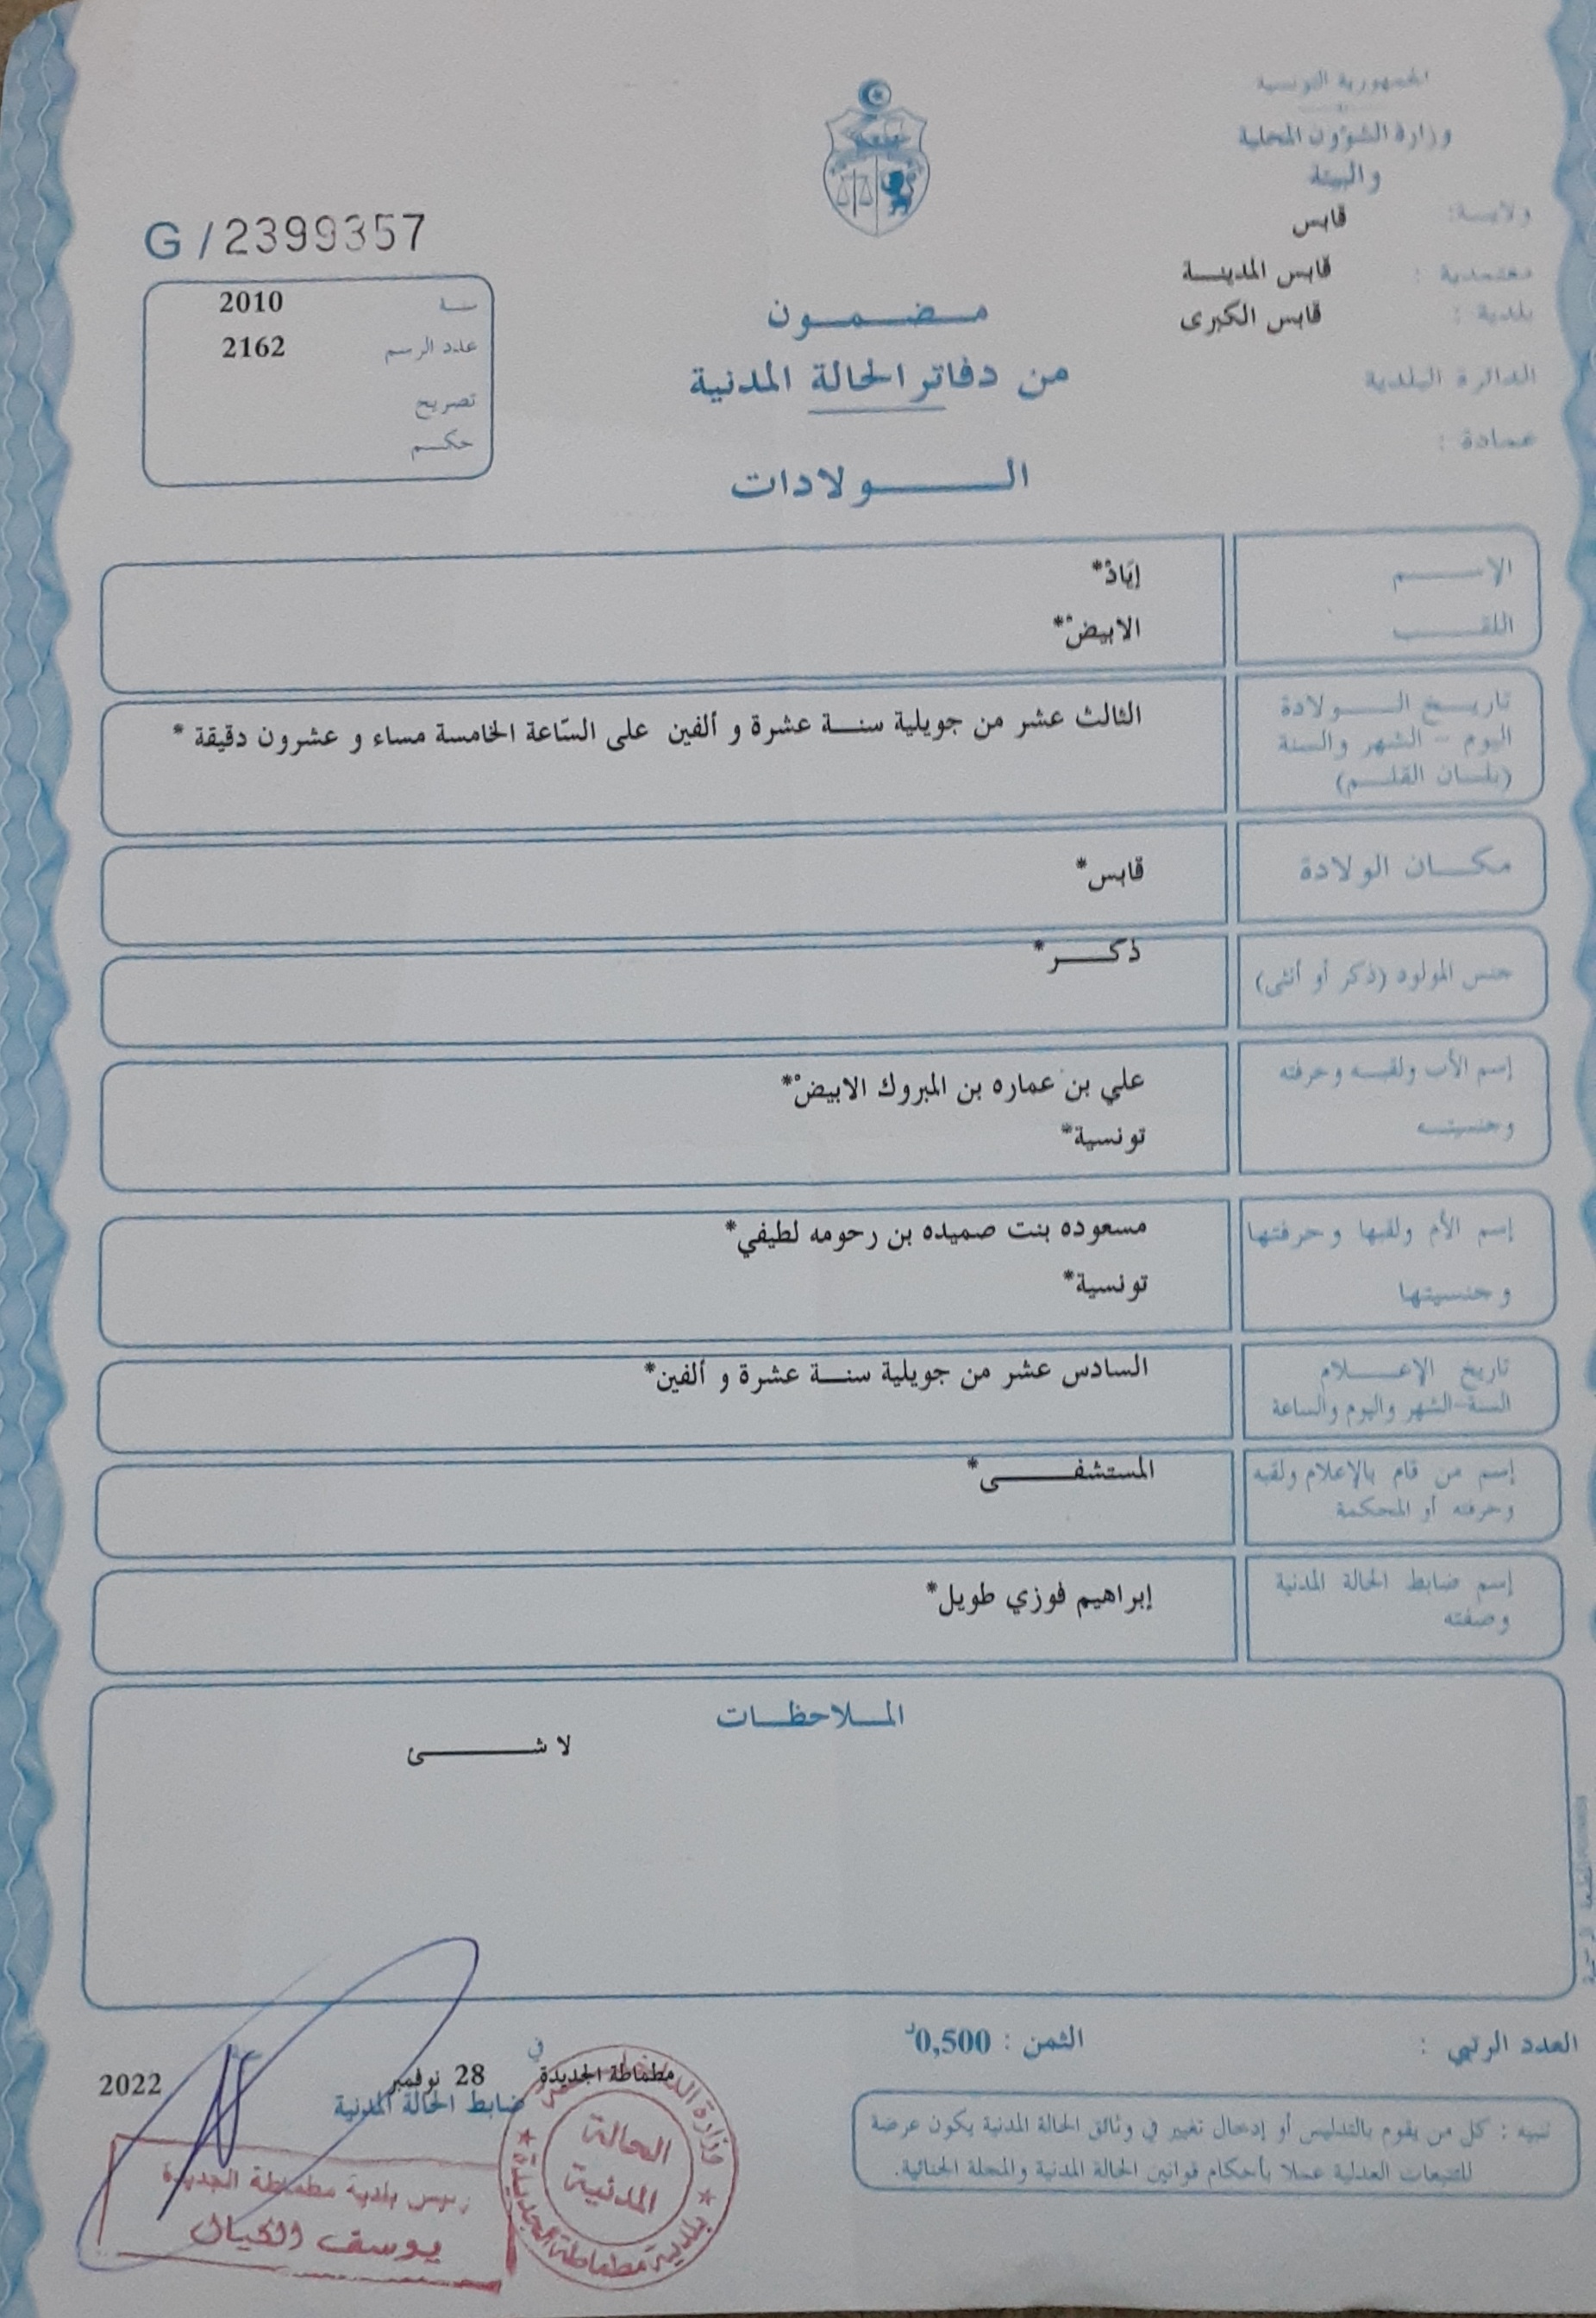 الجمهورية التونسية
وزارة الشؤون المحلية
والبيئة
ولاية: قابس
معتمدية : قابس المدينة
بلدية : قابس الكبرى
الدائرة البلدية
عمادة :
G / 2399357
سنة 2010
عدد الرسم 2162
تصريح
حكم
مضمون
من دفاتر الحالة المدنية
الولادات
الإسم إيَادْ*
اللقب الابيضْ*
تاريخ الولادة
اليوم - الشهر والسنة
(بلسان القلم)
الثالث عشر من جويلية سنة عشرة و ألفين على السّاعة الخامسة مساء و عشرون دقيقة *
مكان الولادة قابس*
جنس المولود (ذكر أو أنثى) ذكر*
إسم الأب ولقبه وحرفته علي بن عماره بن المبروك الابيضْ*
وجنسيته تونسية*
إسم الأم ولقبها وحرفتها مسعوده بنت صميده بن رحومه لطيفي*
وجنسيتها تونسية*
تاريخ الإعلام السادس عشر من جويلية سنة عشرة و ألفين*
السنة-الشهر واليوم والساعة
إسم من قام بالإعلام ولقبه المستشفى*
وحرفته أو المحكمة
إسم ضابط الحالة المدنية إبراهيم فوزي طويل*
وصفته
الملاحظات
لا شئ
العدد الرتبي :
الثمن : 0,500د
مطماطة الجديدة في 28 نوفمبر 2022
ضابط الحالة المدنية
تنبيه : كل من يقوم بالتدليس أو إدخال تغيير في وثائق الحالة المدنية يكون عرضة
للتتبعات العدلية عملا بأحكام قوانين الحالة المدنية والمجلة الجنائية.
الحالة
المدنية
بلدية مطماطة الجديدة
رئيس بلدية مطماطة الجديدة